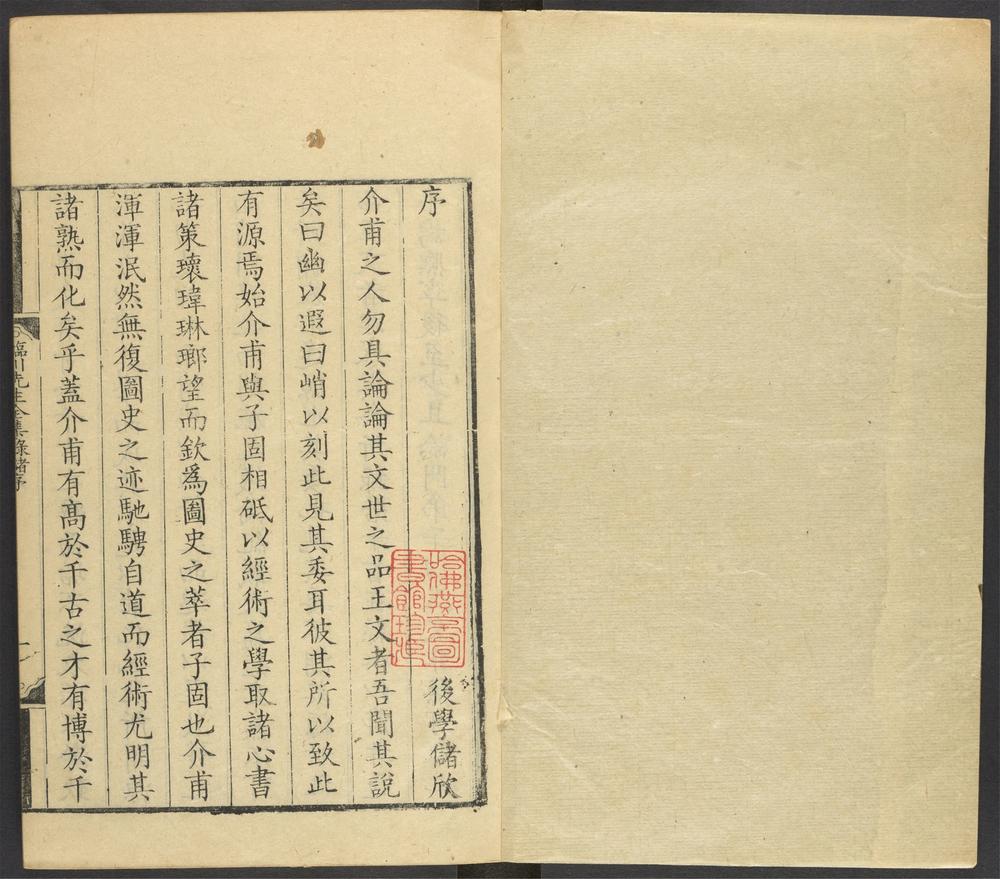 序
後學儲欣
介甫之人勿具論論其文世之品王文者吾聞其說
矣曰幽以遐曰峭以刻此見其委耳彼其所以致此
有源焉始介甫與子固相砥以經術之學取諸心書
諸策瓌瑋琳瑯望而欽為圖史之萃者子固也介甫
渾渾泯然無復圖史之迹馳騁自道而經術尤明其
諸熟而化矣乎蓋介甫有高於千古之才有博於千
臨川先生全集錄諸序
一
哈佛燕京圖書館珍藏